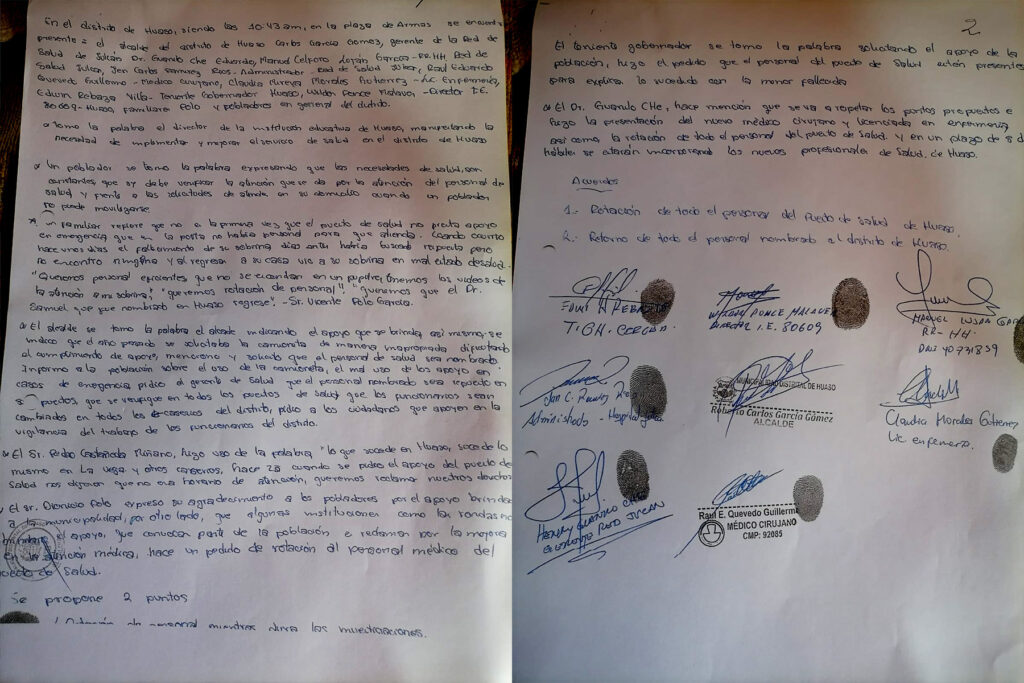 En el distrito de Huaso, siendo las 10:43 am, en la plaza de Armas se encuentra
presente: el alcalde del distrito de Huaso Carlos Garcia Gomez, gerente de la Red de
Salud de Julcán Dr. Guando Che Eduardo, Manuel Lujan Garcia - RR.HH Red de
Salud Julcan, Jan Carlos Ramirez Rios - Administrador - Red de Salud Julcan, Raul Eduardo
Quevedo Guillermo - Medico Cirujano, Claudia Mireya Morales Gutierrez - Lic. Enfermeria,
Edwin Rebaza Villa - Teniente Gobernador Huaso, Wilder Ponce Malaver - Director I.E.
80609 - Huaso, familiare Polo y pobladores en general del distrito.
Tomo la palabra el director de la institución educativa de Huaso, manifestando la
necesidad de implementar y mejorar el servicio de salud en el distrito de Huaso
Un poblador se tomo la palabra expresando que las necesidades de salud, son
constantes, que se debe verificar la atención que se da por la atención del personal de
salud y frente a las solicitudes de atender en su domicilio cuando un poblador
no puede movilizarse
Un familiar refiere que no es la primera vez que el puesto de salud no presta apoyo
en emergencia que en la posta no había personal para que atienda. Cuando ocurrio
hace unos dias el fallecimiento de su sobrina dias antes había buscado respuesta pero
no encontro ninguna y al regresar a su casa vio a su sobrina en mal estado de salud.
"Queremos personal eficientes que no se escondan en un pupitre, tenemos los videos de
la atención a mi sobrina", "queremos rotación de personal", "queremos que el Dr.
Samuel que fue nombrado en Huaso regrese" - Sr. Vicente Polo Garcia.
El alcalde se tomo la palabra el alcalde indicando el apoyo que se brinda, asi mismo se
indico que el año pasado se solicitaba la camioneta de manera inapropiada dificultando
el cumplimiento de apoyo, menciono y solicito que el personal de salud sea nombrado.
Informo a la población sobre el uso de la camioneta, el mal uso de los apoyo en
casos de emergencia pidio al gerente de Salud que el personal nombrado sea repuesto en
s puestos, que se verifique en todos los puestos de salud que los funcionarios sean
cambiados en todos los caserios del distrito, pidio a los ciudadanos que apoyen en la
vigilancia del trabajo de los funcionarios del distrito.
El Sr. Pedro Castañeda Miñano, hizo uso de la palabra "lo que sucede en Huaso, sucede lo
mismo en La Vega y otros caserios, hace 28 cuando se pidio el apoyo del puesto de
Salud nos dijeron que no era horario de atención, queremos reclamar nuestros derechos
El sr. Dionicio Polo expreso su agradecimiento a los pobladores por el apoyo brindado
a la municipalidad, por otro lado, que algunas instituciones como las rondas no
el apoyo, que convoca parte de la población a reclamar por la mejora
en la atención médica, hace un pedido de rotación al personal médico del
puesto de Salud.
Se propone 2 puntos
personal mientras dura las investigaciones.
2
El teniente gobernador se tomo la palabra solicitando el apoyo de la
población, hizo el pedido que el personal del puesto de Salud esten presentes
para explicar lo sucedido con la menor fallecida
El Dr. Guando CHe, hace mención que se va a respetar los puntos propuestos e
hizo la presentación del nuevo médico cirujano y licenciada en enfermeria
asi como la rotación de todo el personal del puesto de Salud. Y en un plazo de 8 d
habiles se estarán incorporando los nuevos profesionales de Salud. de Huaso.
Acuerdos
1.- Rotación de todo el personal del Puesto de Salud de Huaso.
2.- Retorno de todo el personal nombrado al distrito de Huaso.
EDWIN REBAZA
T. GN.
WILDER PONCE MALAVER
DIRECTOR I.E. 80609
MANUEL LUJAN GARC
RR-HH
DNI 40731859
Jan C. Ramirez Rios
Administrador - Hospital
MUNICIPALIDAD DISTRITAL DE HUASO
Roberto Carlos García Gómez
ALCALDE
Claudia Morales Gutierrez
Lic enfermera.
HENRY GUANDO CHE
GERENTE RED JULCAN
Raúl E. Quevedo Guillermo
MÉDICO CIRUJANO
CMP: 92085